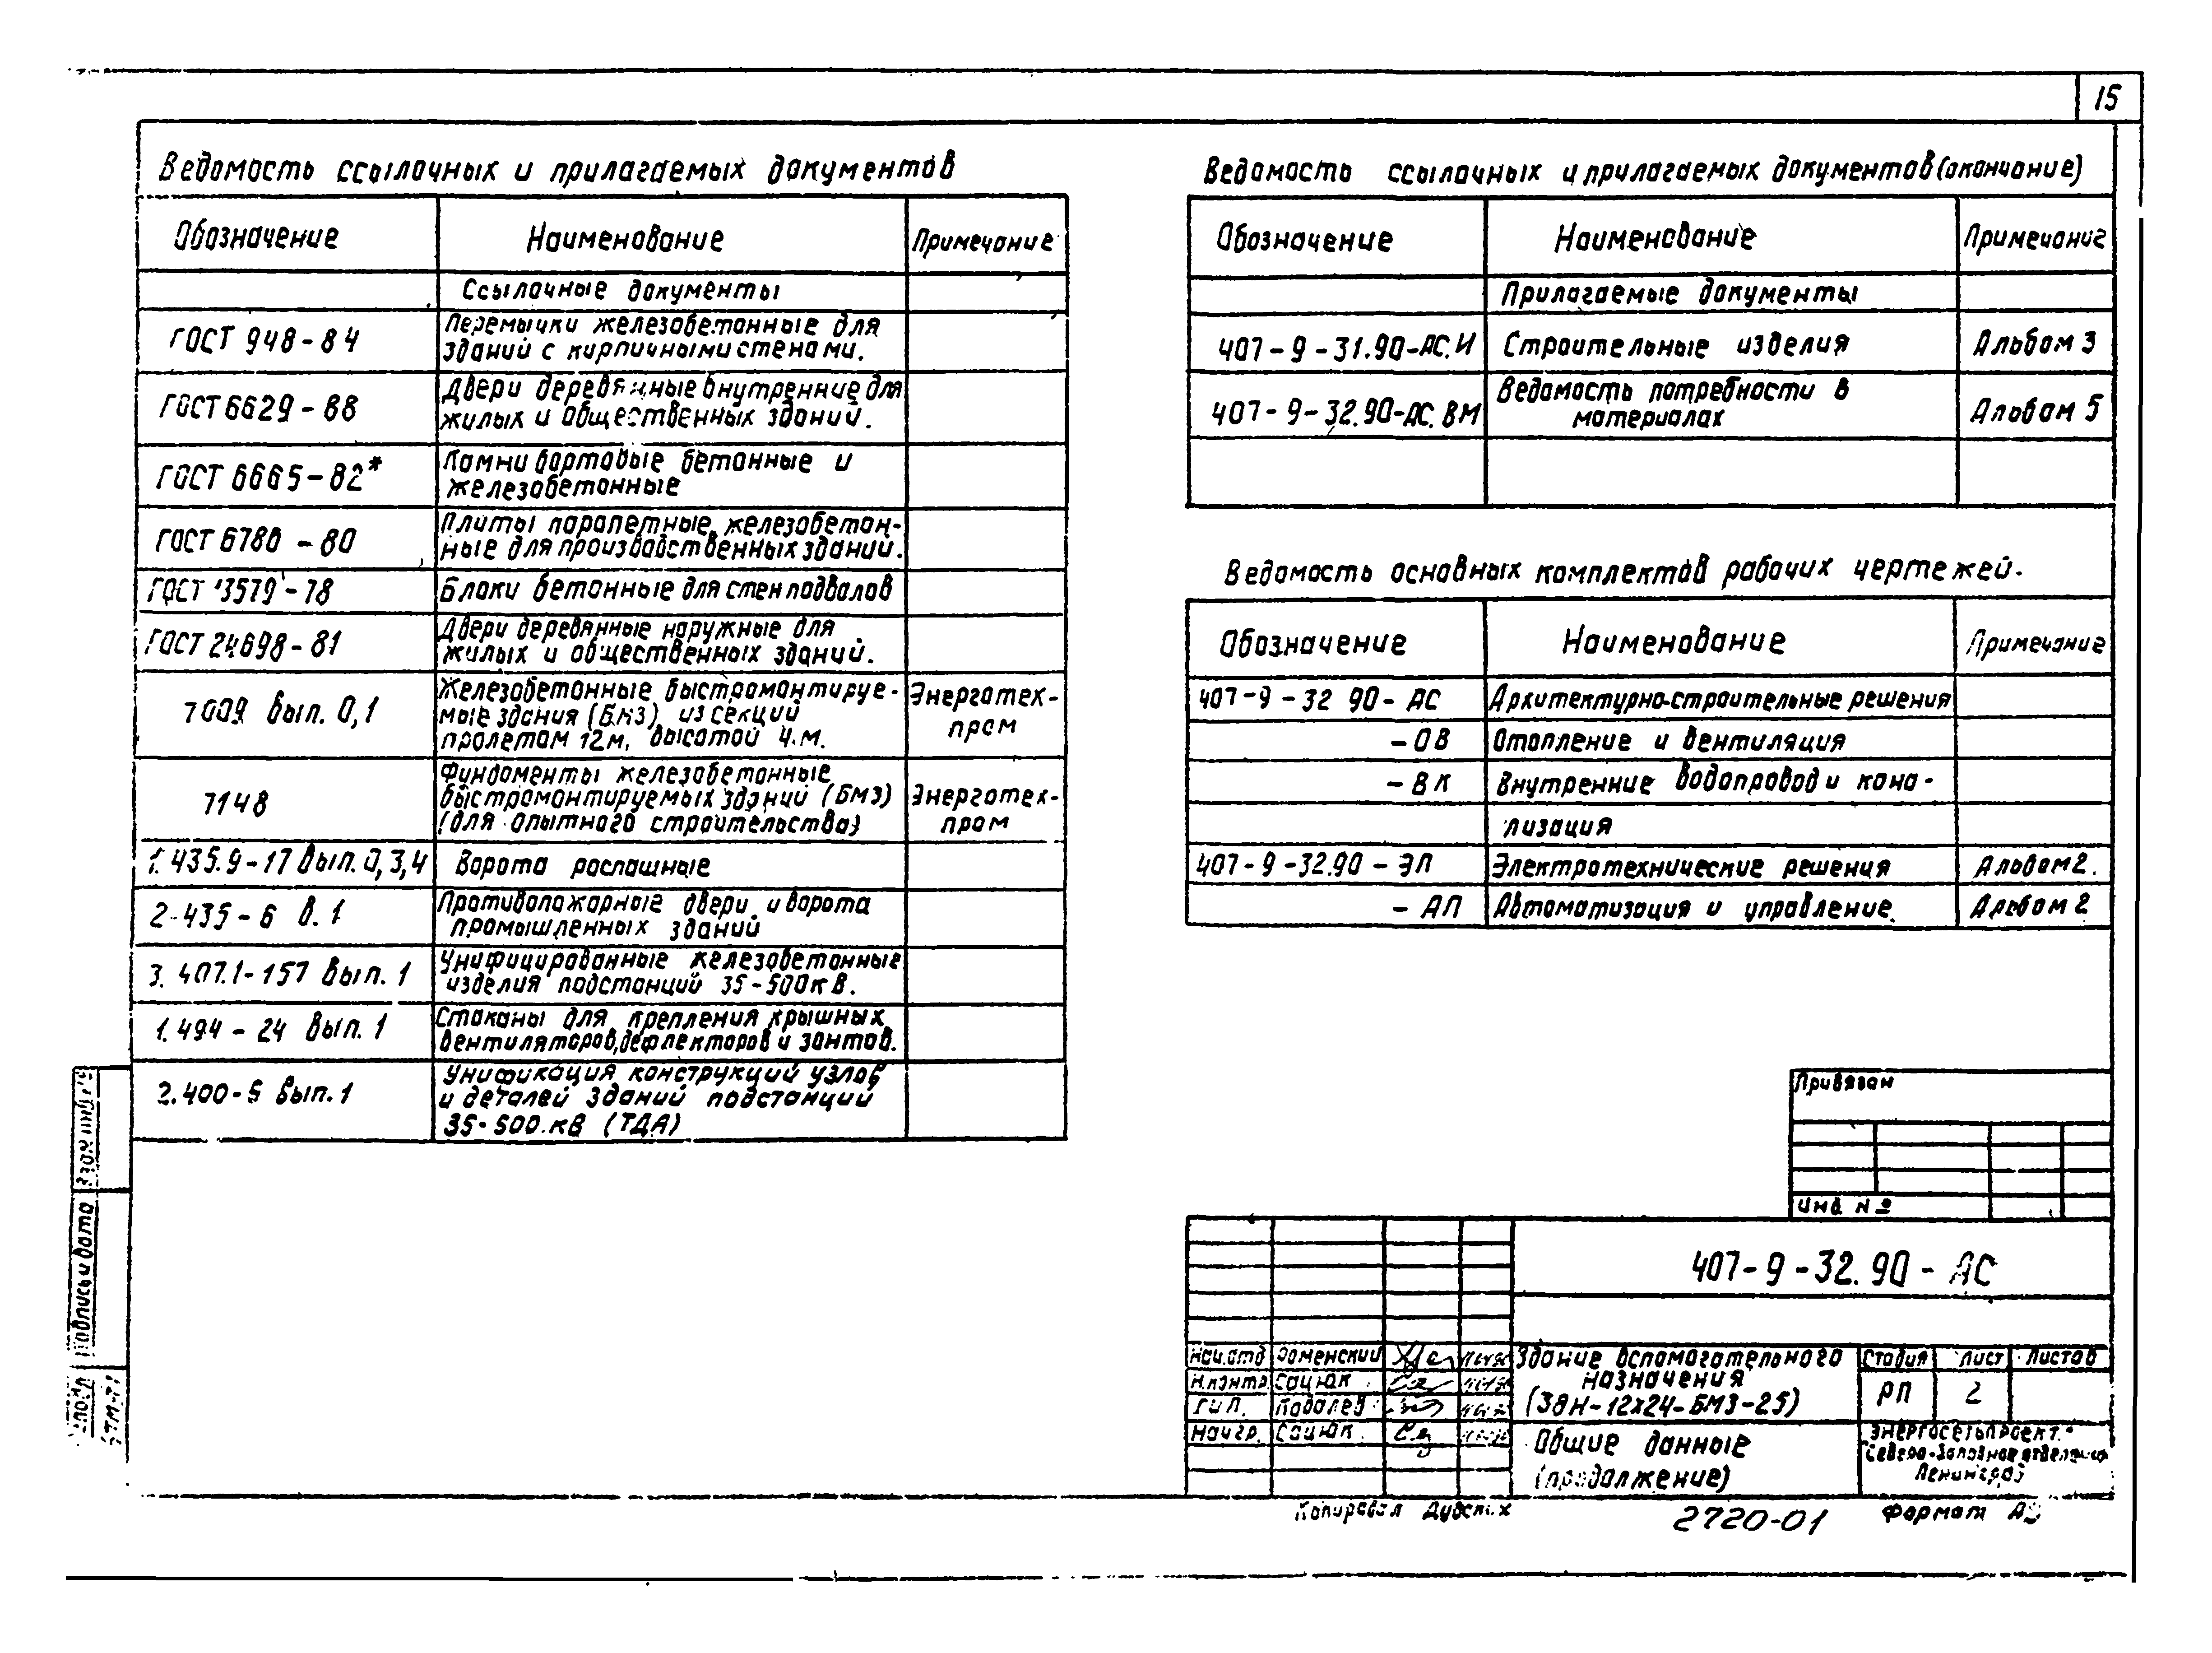 15
Ведомость ссылочных и прилагаемых документов
Обозначение Наименование Примечание
Ссылочные документы
ГОСТ 948-84 Перемычки железобетонные для
зданий с кирпичными стенами.
ГОСТ 6629-88 Двери деревянные внутренние для
жилых и общественных зданий.
ГОСТ 6665-82* Камни бортовые бетонные и
железобетонные
ГОСТ 6786 - 80 Плиты парапетные железобетон-
ные для производственных зданий.
ГОСТ 13579-78 Блоки бетонные для стен подвалов
ГОСТ 24698-81 Двери деревянные наружные для
жилых и общественных зданий.
7009 вып. 0,1 Железобетонные быстромонтируе- Энерготех-
мые здания (БМЗ) из секций пром
пролетом 12м, высотой 4.м.
7148 Фундаменты железобетонные Энерготех-
быстромонтируемых зданий (БМЗ) пром
(для опытного строительства)
1.435.9-17 вып. 0,3,4 Ворота распашные
2.435-6 в.1 Противопожарные двери и ворота
промышленных зданий
3.407.1-157 вып. 1 Унифицированные железобетонные
изделия подстанций 35-500кВ.
1.494-24 вып. 1 Стаканы для крепления крышных
вентиляторов, дефлекторов и зонтов.
2.400-5 вып. 1 Унификация конструкций узлов
и деталей зданий подстанций
35-500.кВ (ТДА)
Ведомость ссылочных и прилагаемых документов (окончание)
Обозначение Наименование Примечание
Прилагаемые документы
407-9-31.90-АС.И Строительные изделия Альбом 3
407-9-32.90-АС.ВМ Ведомость потребности в Альбом 5
материалах
Ведомость основных комплектов рабочих чертежей.
Обозначение Наименование Примечание
407-9-32 90- АС Архитектурно-строительные решения
-ОВ Отопление и вентиляция
-ВК Внутренние водопровод и кана-
лизация
407-9-32.90 - ЭП Электротехнические решения Альбом 2.
- АП Автоматизация и управление. Альбом 2
Привязан
Инв №
407-9-32.90- АС
Нач.отд Роменский
Н.контр. Сацюк
ГИП. Ковалев
Нач.гр. Сацюк.
Здание вспомогательного
назначения
(ЗВН-12х24-БМЗ-25)
Стадия Лист Листов
РП 2
Общие данные
(продолжение)
Энергосетьпроект.
Северо-Западное отделение
Ленинград
Копировал
2720-01
Формат
Взам инв
Подпись и дата